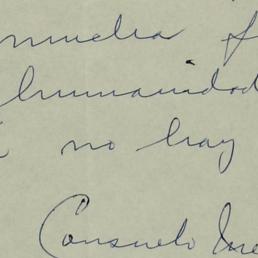 mucha f
humanidad
no hay
Consuelo